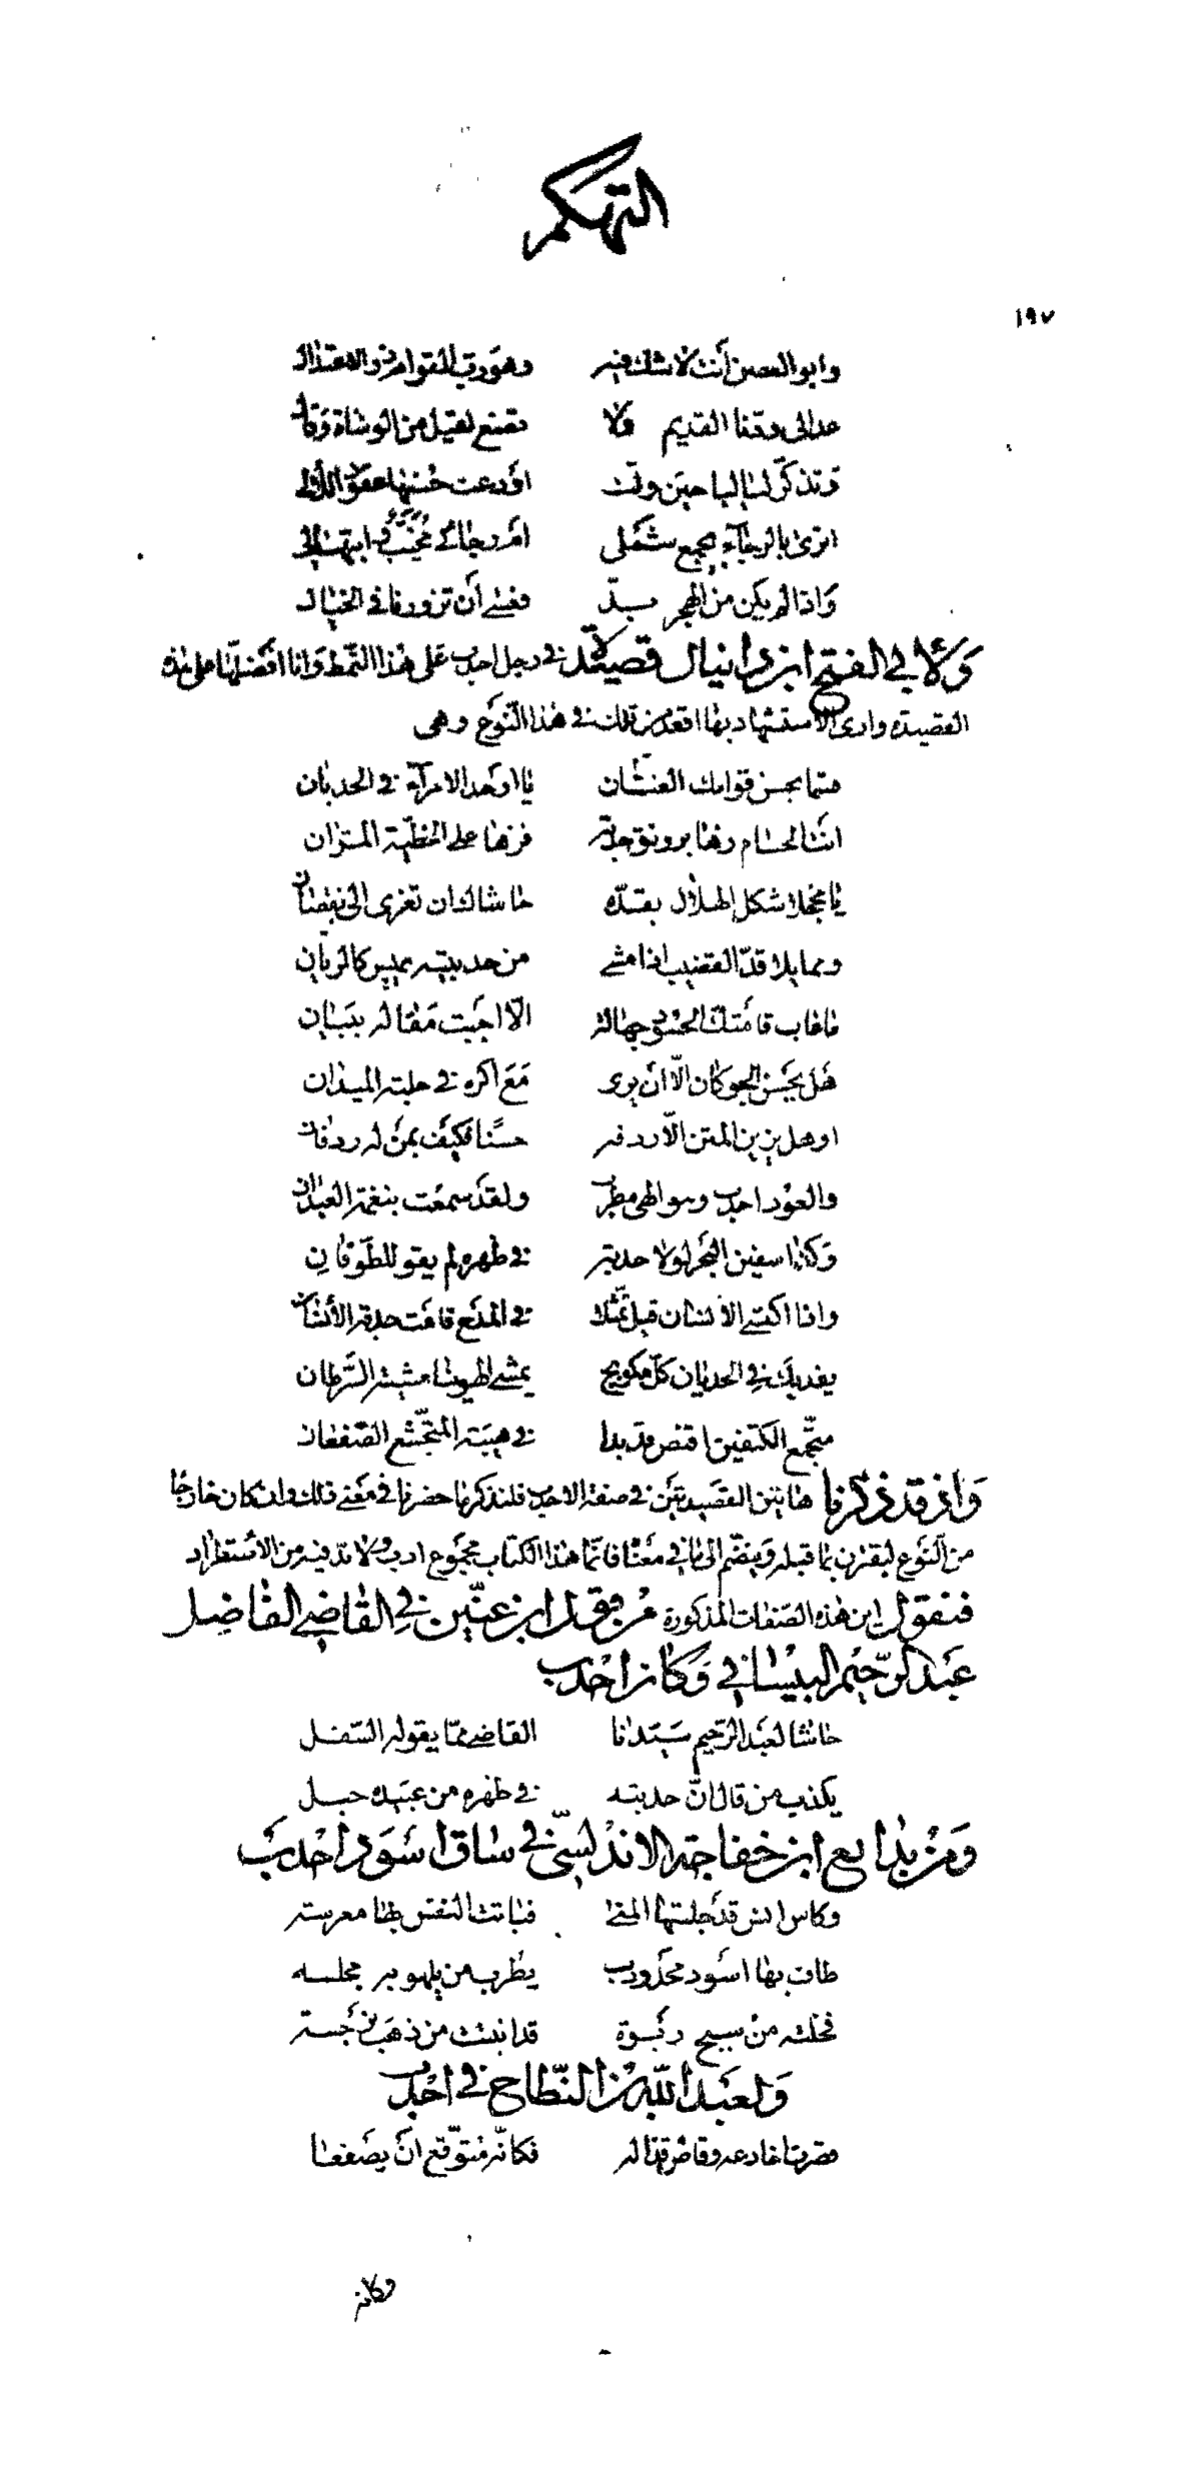 التهكم
١٩٧
وابو الغصن أنت لا شك فيه وهو رب القوام والاعتدال
عد الى ودنا القديم ولا تصغ لقيل من الوشاة وقال
وتذكر لياليا حين ولت اودعت حسنها عقود اللآلى
اترى بالرجاء يجمع شملى ام رجائى مخيب وابتهالى
واذا لم يكن من الهجر بد فعسى أن تزورنا فى الخيال
ولأبي الفتح ابن دانيال قصيدة فى رجل احدب على هذا النمط وانا افضلها على هذه
القصيدة وارى الاستشهاد بها اقعد من تلك فى هذا النوع وهى
قسما بحسن قوامك الفتان يا اوحد الامرآء فى الحدبان
انت الحسام زها برونق حده فزها على الخطية المران
يا مخجلا شكل الهلال بقده حاشاك ان تعزى الى نقصان
ومما يلا قد القضيب اذا مشى من حدبته يميس كالريان
ما عاب قامتك الحسود جهالة الا اجبت مقاله ببيان
هل يحسن الجوكان الا ان يرى مع اكرة فى حلبة الميدان
او هل يزين المتن الا ردفه حسنا فكيف بمن له ردفان
والعود احدب وهو الهى مطرب ولقد سمعت بنغمة العيدان
وكذا سفين البحر لولا حدبة فى ظهره لم يقو للطوفان
واذا اكتسى الانسان قيل تمثلت فى المدح قامت حدبة الأنسان
يفديك فى الحدبان كل مكوبج يمشى الهوينا مشية السرطان
متجمع الكتفين اقنص قد بدا فى هيئة المتجشع الصفعان
واذ قد ذكرنا هاتين القصيدتين فى صفة الاحدب فلنذكر ما حضرنا فى معنى ذلك وان كان خارجا
من النوع ليقترن بما قبله وينضم الى ما فى معناه فانما هذا الكتاب مجموع ادب ولا بد فيه من الاستطراد
فنقول من هذه الصفات المذكورة من قول ابن عنين فى القاضى الفاضل
عبد الرحيم البيسانى وكان احدب
حاشا لعبد الرحيم سيدنا القاضى مما يقوله السفل
يكذب من قال ان حدبته فى ظهره من عبيده حبل
ومن بدايع ابن خفاجة الاندلسى فى ساق اسود احدب
وكاس انس قد جلتها المنى فباتت النفس بها معرسه
طاف بها اسود محدودب يطرب من يلهو به مجلسه
فخلته من سبج ربوة قد انبتت من ذهب نرجسه
ولعبد الله بن النطاح فى احدب
قصرت اخادعه وغاض قذاله فكانه متوقع ان يصفعا
وكانه